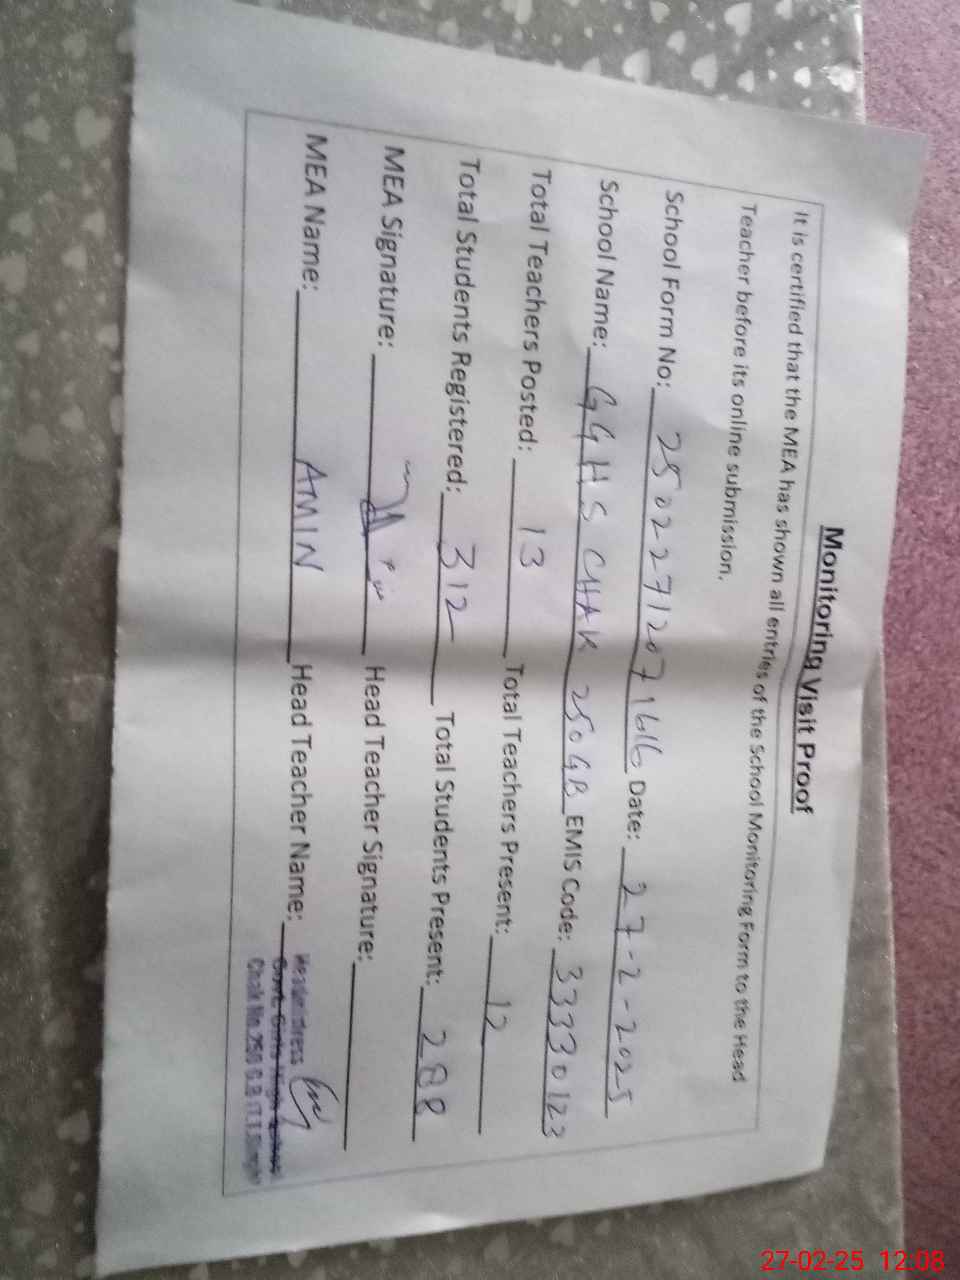 Monitoring Visit Proof
It is certified that the MEA has shown all entries of the School Monitoring Form to the Head
Teacher before its online submission.
School Form No: 25022712071616 Date: 27-2-2025
School Name: GGHS CHAK 250 GB EMIS Code: 33330123
Total Teachers Posted: 13 Total Teachers Present: 12
Total Students Registered: 312 Total Students Present: 288
MEA Signature: Head Teacher Signature:
MEA Name: AMIN Head Teacher Name:
Headmistress
Govt. Girls High School
Chak No. 250 G.B (T.T.Singh)
27-02-25 12:08